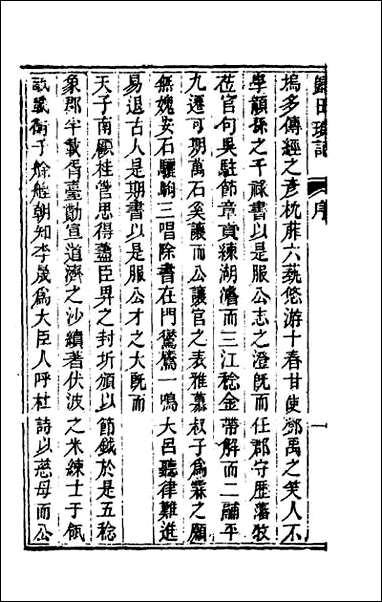 歸田瑣記 序 一
塢多傳經之彥枕葄六藝悠游十春甘使鄧禹之笑人不
學顓孫之干祿書以是服公志之澄旣而任郡守歷藩牧
莅官句吳駐節章貢練湖濬而三江稔金帶解而二鬴平
九遷可期萬石奚讓而公讓官之表雅慕叔子爲霖之願
無媿安石驪駒三唱除書在門鸑鷟一鳴大呂聽律難進
易退古人是期書以是服公才之大旣而
天子南顧桂管思得藎臣畀之封圻頒以節鉞於是五稔
象郡半載胥臺勤宣道濟之沙續著伏波之米練士于佩
設驖衝于艅艎朝知李晟爲大臣人呼杜詩以慈母而公